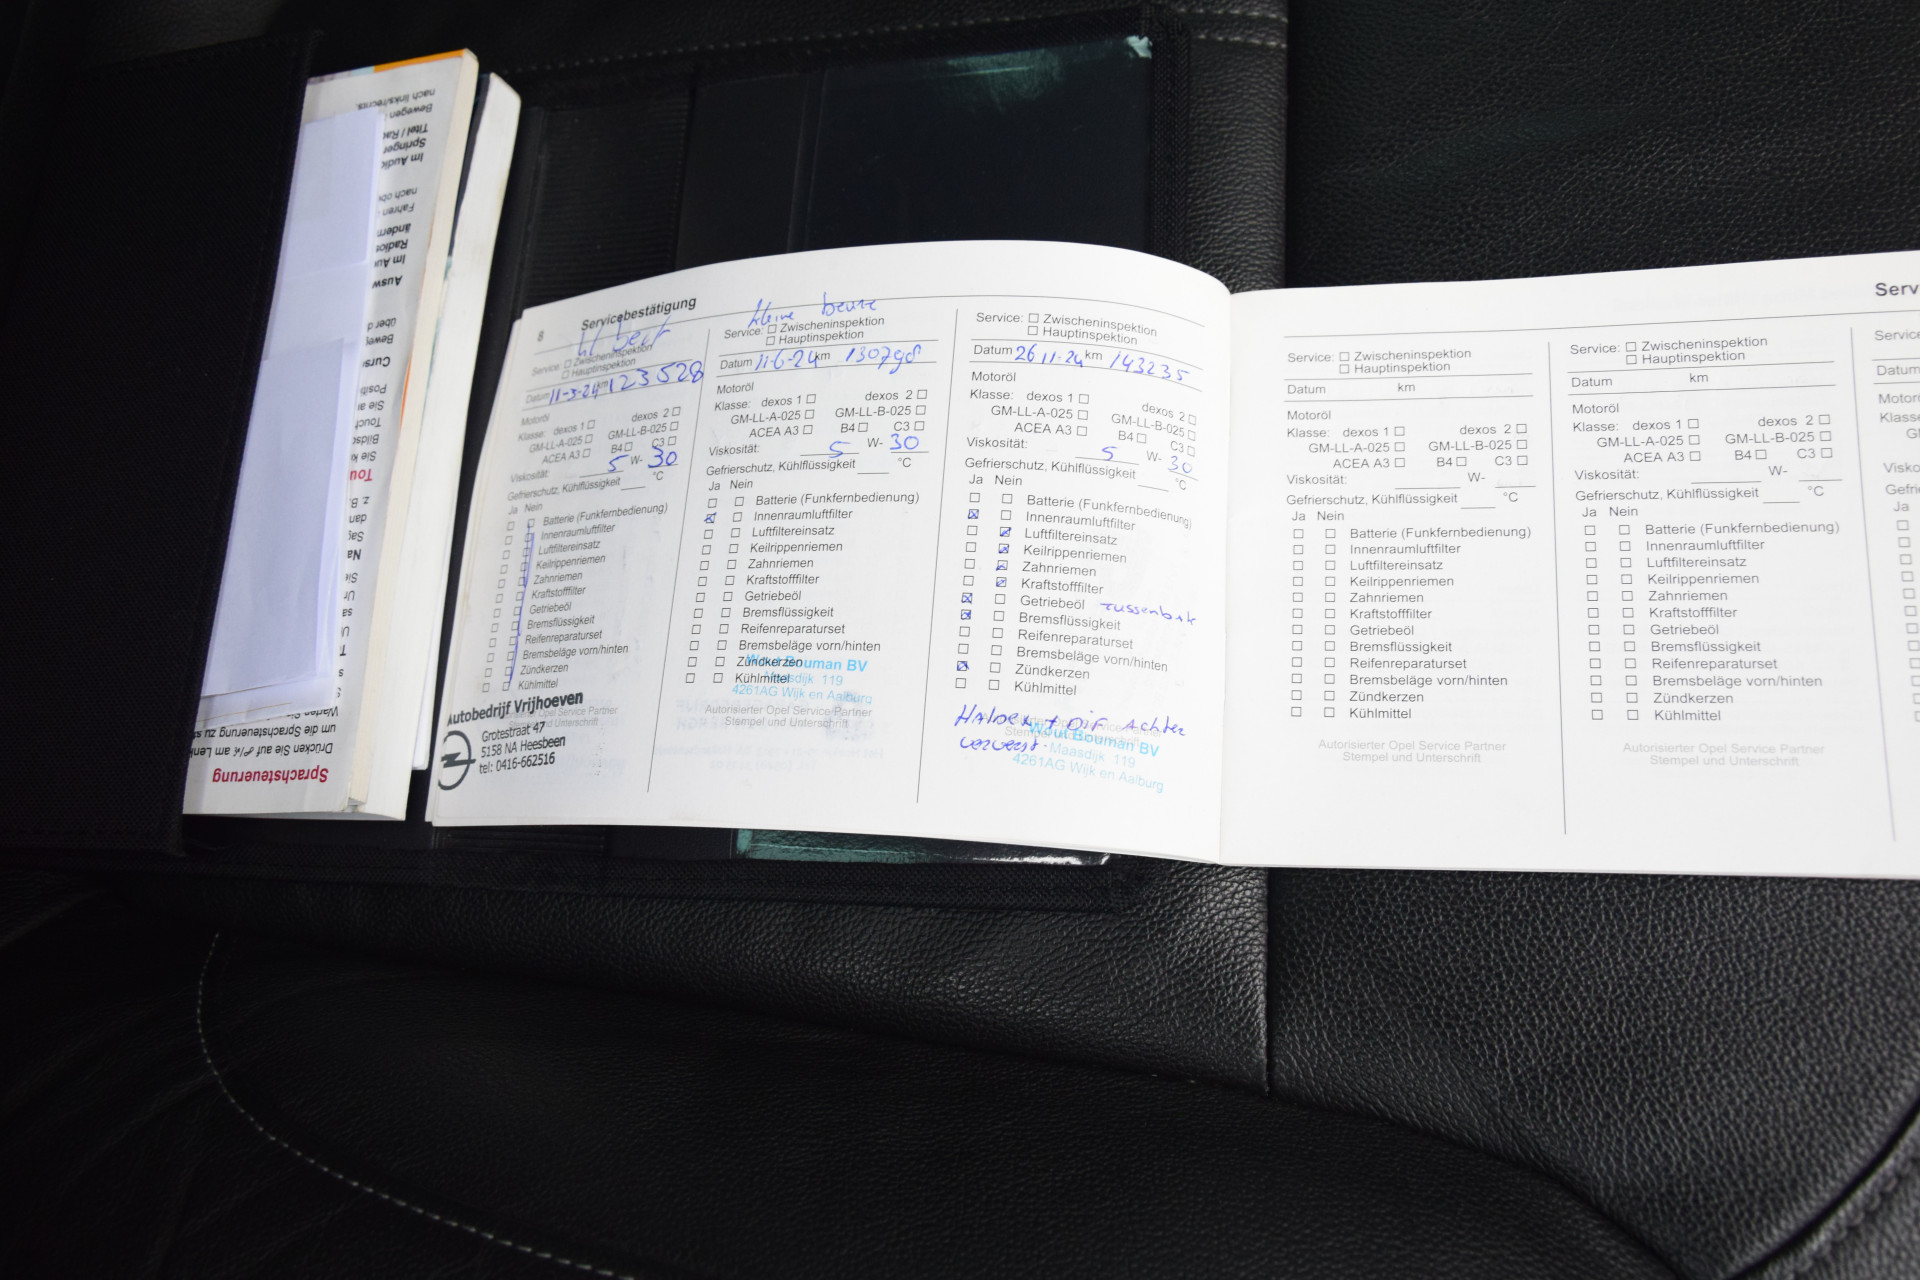 8
Servicebestätigung
kl beurt
Service: ☐ Zwischeninspektion
☐ Hauptinspektion
Datum 11-3-24 km 123528
Motoröl
Klasse: dexos 1 ☐ dexos 2 ☐
GM-LL-A-025 ☐ GM-LL-B-025 ☐
ACEA A3 ☐ B4 ☐ C3 ☐
Viskosität: 5 W- 30
Gefrierschutz, Kühlflüssigkeit ____ °C
Ja Nein
☐ ☐ Batterie (Funkfernbedienung)
☐ ☐ Innenraumluftfilter
☐ ☐ Luftfiltereinsatz
☐ ☐ Keilrippenriemen
☐ ☐ Zahnriemen
☐ ☐ Kraftstofffilter
☐ ☐ Getriebeöl
☐ ☐ Bremsflüssigkeit
☐ ☐ Reifenreparaturset
☐ ☐ Bremsbeläge vorn/hinten
☐ ☐ Zündkerzen
☐ ☐ Kühlmittel
Autorisierter Opel Service Partner
Stempel und Unterschrift
Autobedrijf Vrijhoeven
Grotestraat 47
5158 NA Heesbeen
tel: 0416-662516
kleine beurt
Service: ☐ Zwischeninspektion
☐ Hauptinspektion
Datum 11-6-24 km
Motoröl
Klasse: dexos 1 ☐ dexos 2 ☐
GM-LL-A-025 ☐ GM-LL-B-025 ☐
ACEA A3 ☐ B4 ☐ C3 ☐
Viskosität: 5 W- 30
Gefrierschutz, Kühlflüssigkeit ____ °C
Ja Nein
☐ ☐ Batterie (Funkfernbedienung)
☒ ☐ Innenraumluftfilter
☐ ☐ Luftfiltereinsatz
☐ ☐ Keilrippenriemen
☐ ☐ Zahnriemen
☐ ☐ Kraftstofffilter
☐ ☐ Getriebeöl
☐ ☐ Bremsflüssigkeit
☐ ☐ Reifenreparaturset
☐ ☐ Bremsbeläge vorn/hinten
☐ ☐ Zündkerzen
☐ ☐ Kühlmittel
Wout Bouman BV
Maasdijk 119
4261AG Wijk en Aalburg
Autorisierter Opel Service Partner
Stempel und Unterschrift
Service: ☐ Zwischeninspektion
☐ Hauptinspektion
Datum 26 11-24 km 143235
Motoröl
Klasse: dexos 1 ☐ dexos 2 ☐
GM-LL-A-025 ☐ GM-LL-B-025 ☐
ACEA A3 ☐ B4 ☐ C3 ☐
Viskosität: 5 W- 30
Gefrierschutz, Kühlflüssigkeit ____ °C
Ja Nein
☐ ☐ Batterie (Funkfernbedienung)
☒ ☐ Innenraumluftfilter
☐ ☒ Luftfiltereinsatz
☐ ☒ Keilrippenriemen
☐ ☒ Zahnriemen
☐ ☒ Kraftstofffilter
☒ ☐ Getriebeöl tussenbak
☒ ☐ Bremsflüssigkeit
☐ ☐ Reifenreparaturset
☐ ☐ Bremsbeläge vorn/hinten
☒ ☐ Zündkerzen
☐ ☐ Kühlmittel
Haldex + Dif achter
ververst.
Wout Bouman BV
Maasdijk 119
4261AG Wijk en Aalburg
Serv
Service: ☐ Zwischeninspektion
☐ Hauptinspektion
Datum km
Motoröl
Klasse: dexos 1 ☐ dexos 2 ☐
GM-LL-A-025 ☐ GM-LL-B-025 ☐
ACEA A3 ☐ B4 ☐ C3 ☐
Viskosität: ____ W- ____
Gefrierschutz, Kühlflüssigkeit ____ °C
Ja Nein
☐ ☐ Batterie (Funkfernbedienung)
☐ ☐ Innenraumluftfilter
☐ ☐ Luftfiltereinsatz
☐ ☐ Keilrippenriemen
☐ ☐ Zahnriemen
☐ ☐ Kraftstofffilter
☐ ☐ Getriebeöl
☐ ☐ Bremsflüssigkeit
☐ ☐ Reifenreparaturset
☐ ☐ Bremsbeläge vorn/hinten
☐ ☐ Zündkerzen
☐ ☐ Kühlmittel
Autorisierter Opel Service Partner
Stempel und Unterschrift
Service: ☐ Zwischeninspektion
☐ Hauptinspektion
Datum km
Motoröl
Klasse: dexos 1 ☐ dexos 2 ☐
GM-LL-A-025 ☐ GM-LL-B-025 ☐
ACEA A3 ☐ B4 ☐ C3 ☐
Viskosität: ____ W- ____
Gefrierschutz, Kühlflüssigkeit ____ °C
Ja Nein
☐ ☐ Batterie (Funkfernbedienung)
☐ ☐ Innenraumluftfilter
☐ ☐ Luftfiltereinsatz
☐ ☐ Keilrippenriemen
☐ ☐ Zahnriemen
☐ ☐ Kraftstofffilter
☐ ☐ Getriebeöl
☐ ☐ Bremsflüssigkeit
☐ ☐ Reifenreparaturset
☐ ☐ Bremsbeläge vorn/hinten
☐ ☐ Zündkerzen
☐ ☐ Kühlmittel
Autorisierter Opel Service Partner
Stempel und Unterschrift
Service
Datum
Motor
Klasse
Visko
Gefri
Ja
Sprachsteuerung
Drücken Sie auf am Lenk
um die Sprachsteuerung zu s